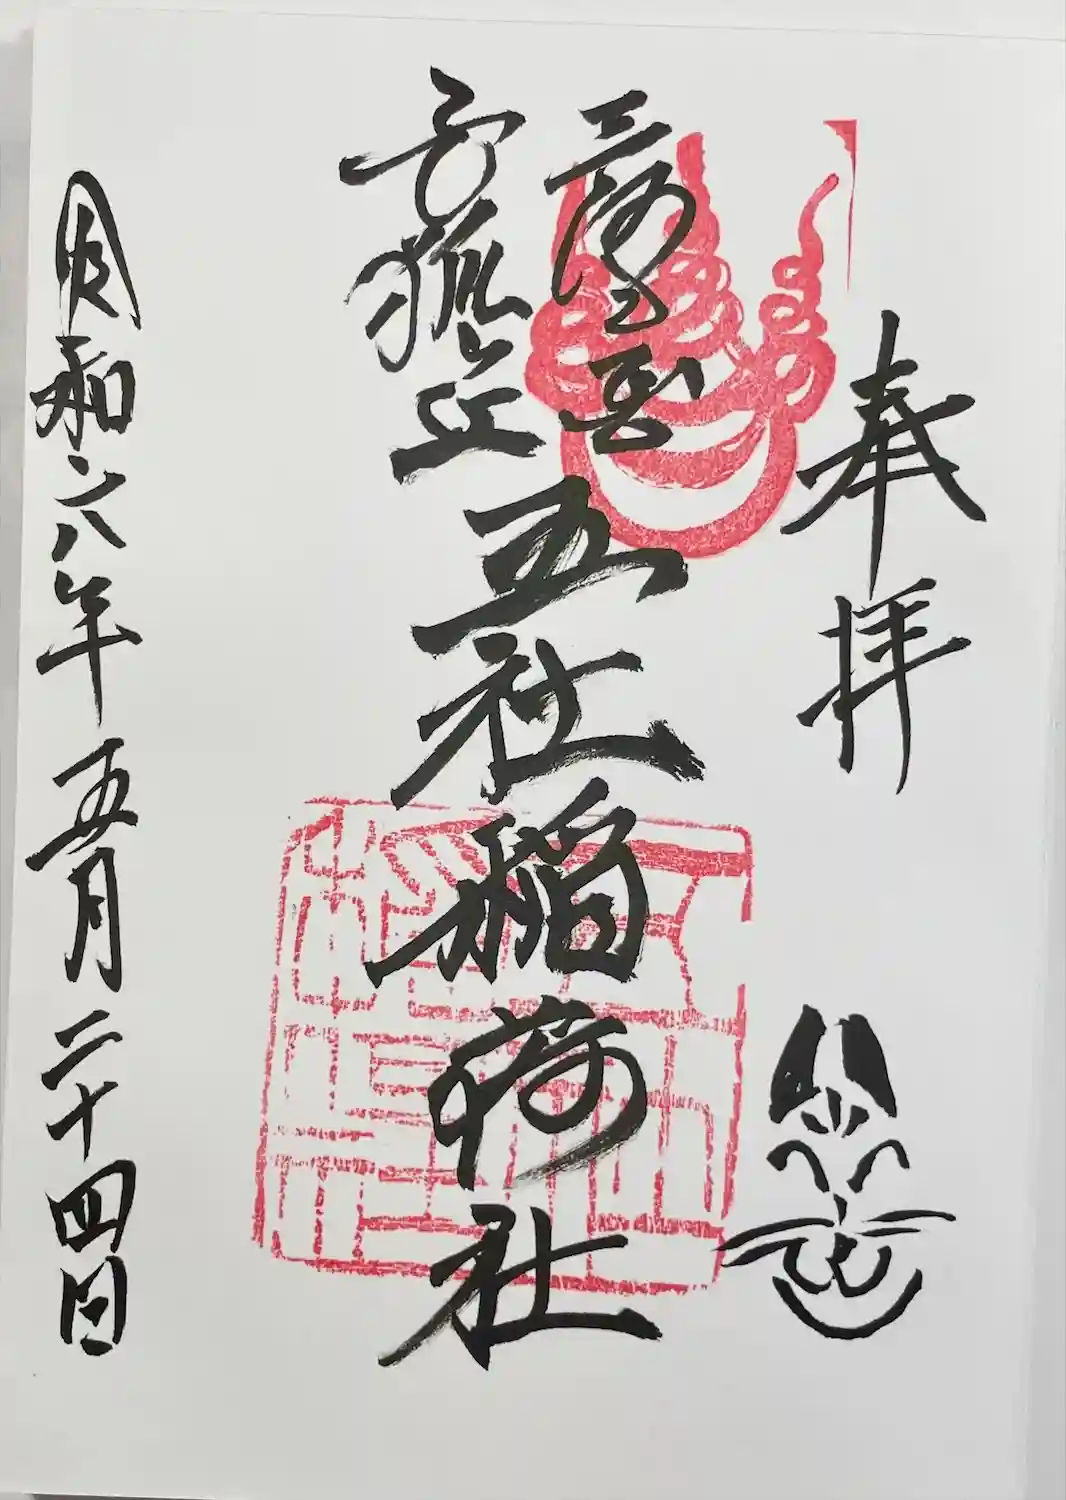 奉拝
三河
五社稲荷社
令和六年五月二十四日